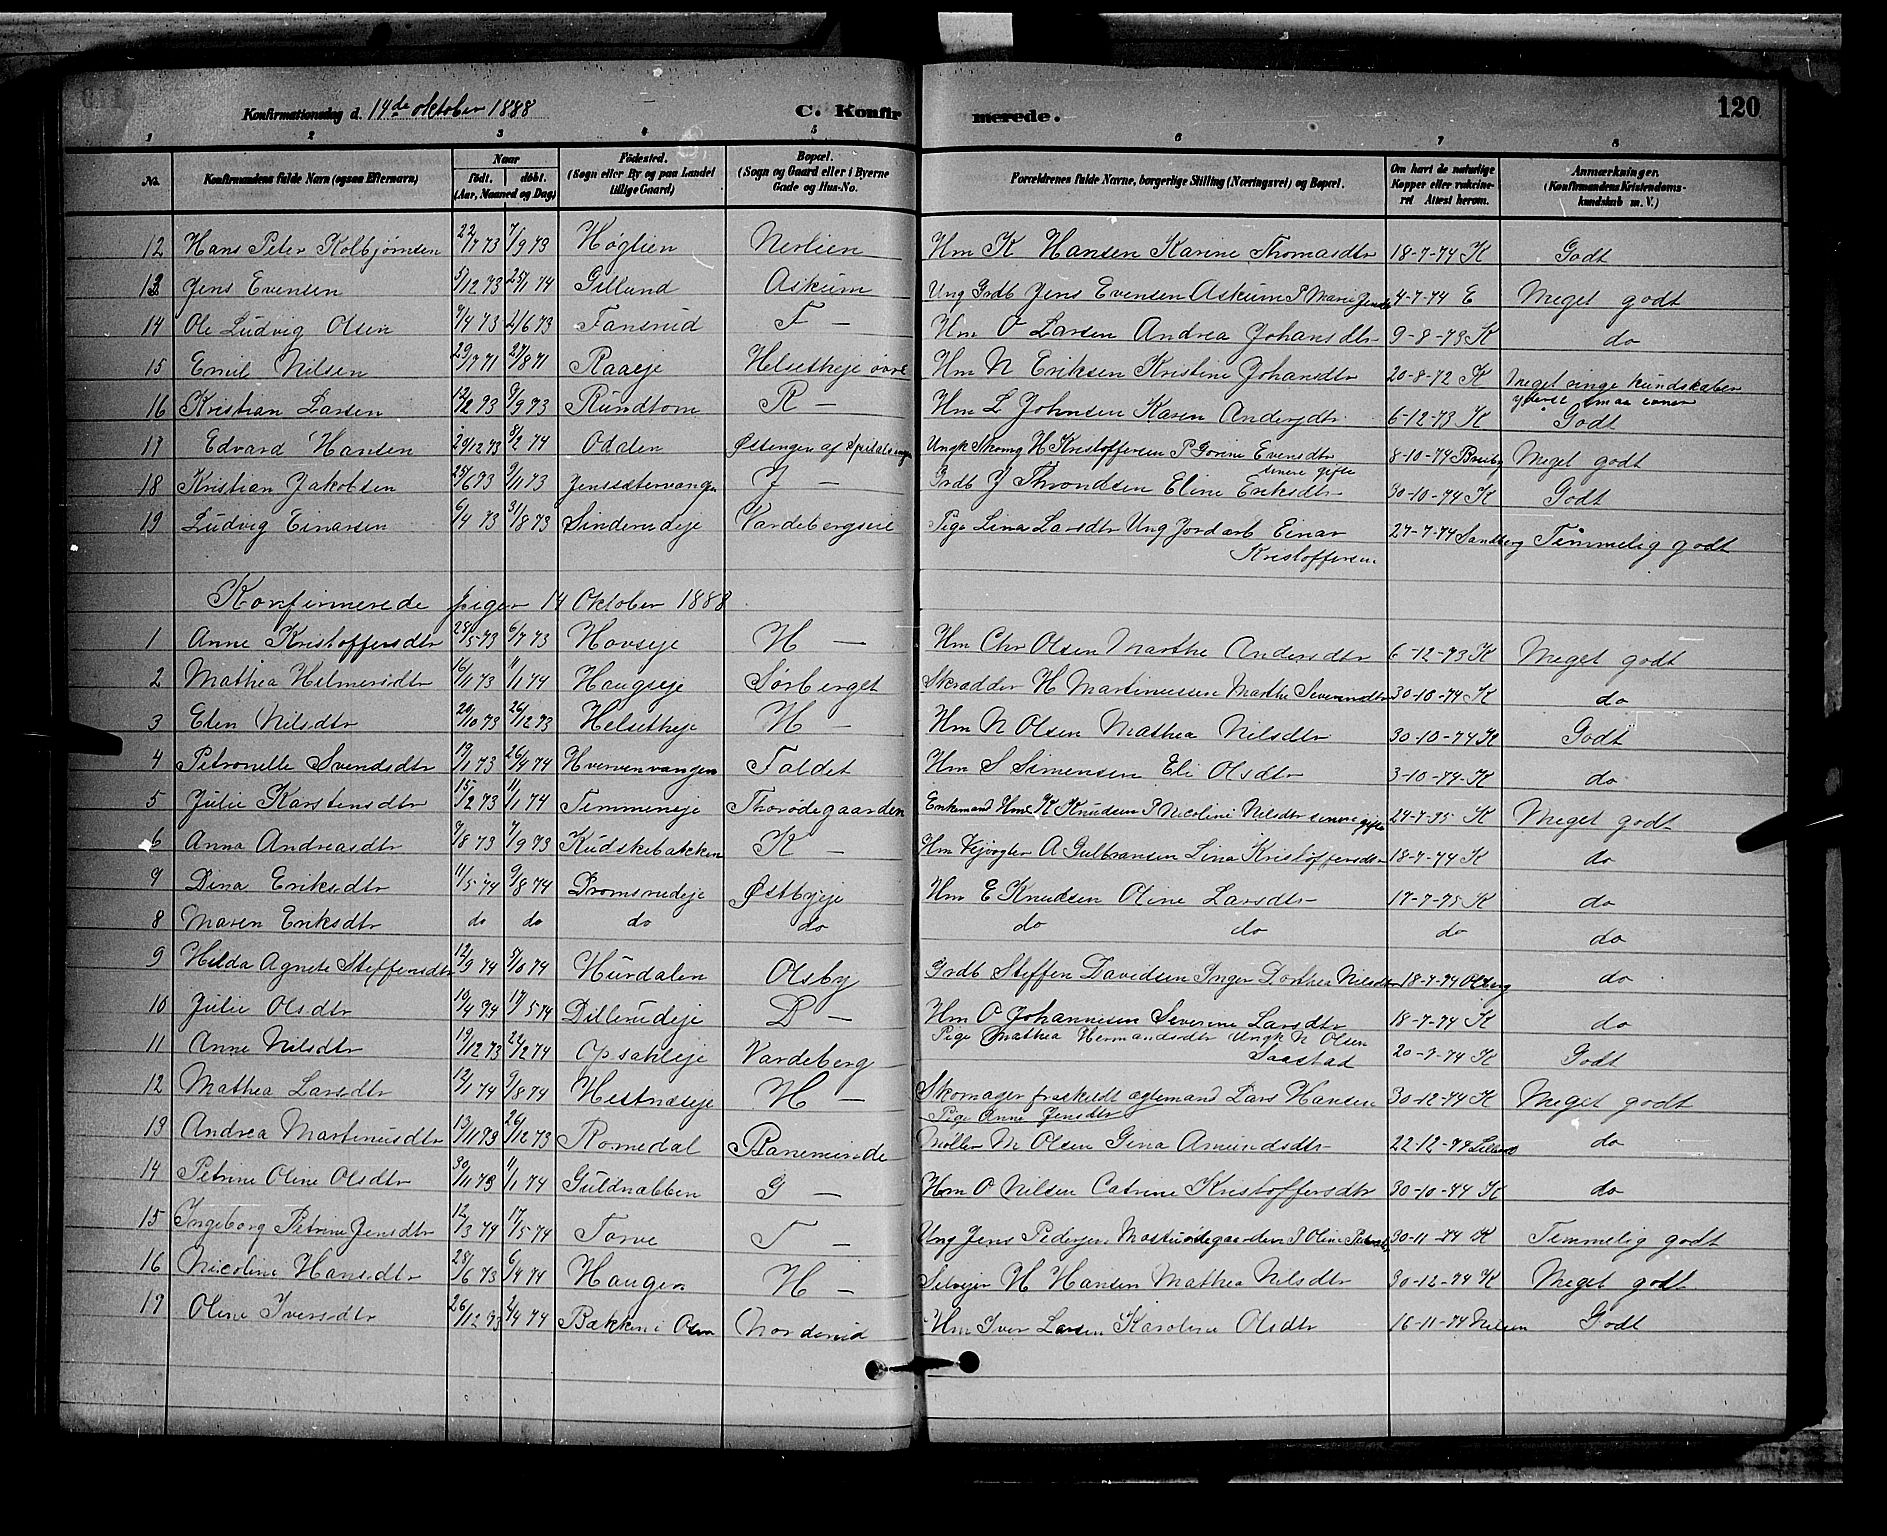 Konfirmationsdag d. 14de oktober 1888 C. Konfirmerede. 120
1 2 3 4 5 6 7 8
No. Konfirmandens fulde Navn (ogsaa Efternavn) Naar født. døbt. (Aar, Maaned og Dag) Fødested. (Sogn eller By og paa Landet tillige Gaard) Bopæl. (Sogn og Gaard eller i Byerne Gade og Hus-No. Forældrenes fulde Navne, borgerlige Stilling (Næringsvei) og Bopæl. Om havt de naturlige Kopper eller vaksineret Attest herom. Anmærkninger. (Konfirmandens Kristendomskundskab m. V.)
12 Hans Peter Kolbjørnsen 22/7 73 7/9 73 Høglien Nerlien Hm K Hansen Karine Thomasdtr 18-7-74 K Godt
13 Jens Evensen 5/12 73 25/1 74 Gillund Askum Ung Grdb Jens Evensen Askum P Marie 4-7-74 E Meget godt
14 Ole Ludvig Olsen 7/4 73 2/6 73 Fansrud F — Hm O Larsen Andrea Johansdtr 9-8-73 K do
15 Emil Nilsen 29/7 71 27/8 71 Raaeje Helsetheje øvre Hm N Eriksen Kristine Johansdtr 20-8-72 K Meget ringe kundskaber yderst smaa evner
16 Kristian Larsen 12/2 73 9/9 73 Rundtom R — Hm L Johnsen Karen Andersdtr 6-12-73 K Godt
17 Edvard Hansen 20/12 73 8/2 74 Odalen Østengen af Ungk H Kristoffersen P Gorine Evensdtr 8-10-74 Meget godt
18 Kristian Jakobsen 25/6 73 9/11 73 Jenssætervangen J — Grdb J Throndsen Eline Eriksdtr senere gifte 30-10-74 K Godt
19 Ludvig Einarsen 6/4 73 31/8 73 Sinderudeje Vardebergseie Pige Lina Larsdtr Ung Jordarb Einar Kristoffersen 27-7-74 Sandberg Temmelig godt
Konfirmerede piger 14 Oktober 1888
1 Anne Kristoffersdtr 28/5 73 6/7 73 Hovseje H — Hm Chr Olsen Marthe Andersdtr 6-12-73 K Meget godt
2 Mathea Helmersdtr 16/11 73 11/1 74 Haugseje Sørberget Skrædder H Martinussen Marthe 30-10-74 K do
3 Elen Nilsdtr 20/10 73 26/12 73 Helsetheje H — Hm N Olsen Mathea Nilsdtr 30-10-74 K Godt
4 Petronelle Svendsdtr 19/1 73 26/4 74 Hvervenvangen Faldet Hm S Simensen Eli Olsdtr 3-10-74 K do
5 Julie Karstensdtr 15/2 73 11/1 74 Temmeneje Thorødegaarden Enkemand Hm K Knudsen P Nicoline Nilsdtr senere gifte 24-7-75 K Meget godt
6 Anna Andreasdtr 9/8 73 7/9 73 Kudskebakken K — Hm Vejvogter A Gulbransen Lina Kristoffersdtr 18-7-74 K do
7 Dina Eriksdtr 11/5 74 9/8 74 Promsrudeje Østbyeje Hm E Knudsen Oline Larsdtr 17-7-75 K do
8 Maren Eriksdtr do do do do do do do do
9 Hilda Agnete Steffensdtr 12/9 74 5/10 74 Hurdalen Olsby Grdb Steffen Davidsen Inger Dorthea Nilsdtr 18-7-74 do
10 Julie Olsdtr 10/4 74 17/5 74 Dillerudeje D — Hm O Johannesen Severine Larsdtr 18-7-74 K do
11 Anne Nilsdtr 19/12 73 24/2 74 Opsahleje Vardeberg Pige Mathea Hermandsdtr Ungk N Olsen Saastad 20-7-74 K Godt
12 Mathea Larsdtr 12/1 74 9/8 74 Hestnæseje H — Skomager fraskildt ægtemand Lars Hansen Pige Anne Jensdtr 30-12-74 K Meget godt
13 Andrea Martinusdtr 13/11 73 26/12 73 Romedal Baneminde Møller M Olsen Gina Amundsdtr 22-12-74 do
14 Petrine Oline Olsdtr 30/11 73 11/1 74 Guldnabben G — Hm O Nilsen Catrine Kristoffersdtr 30-10-74 K do
15 Ingeborg Petrine Jensdtr 12/3 74 17/5 74 Torve T — Ung Jens Pedersen P Oline 30-11-74 K Temmelig godt
16 Nicoline Hansdtr 28/6 73 6/4 74 Haugen H — Selvejer H Hansen Mathea Nilsdtr 30-12-74 K Meget godt
17 Oline Iversdtr 26/12 73 2/4 74 Bakken i Nordrud Hm Iver Larsen Karoline Olsdtr 16-11-74 Nilsen Godt